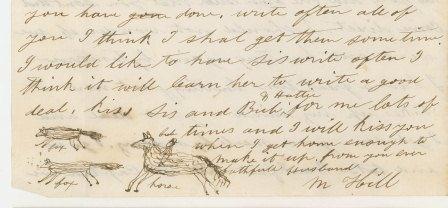 you have gone done, write often all of
you I think I shal get them some time.
I would like to have sis write often I
think it will learn her to write a good
deal, Kiss Sis and Bub, & Hattie for me lots of
times and I will kiss you
when I get home enough to
make it up. from you ever
faithfull husband
M Hill
fox
fox
horse